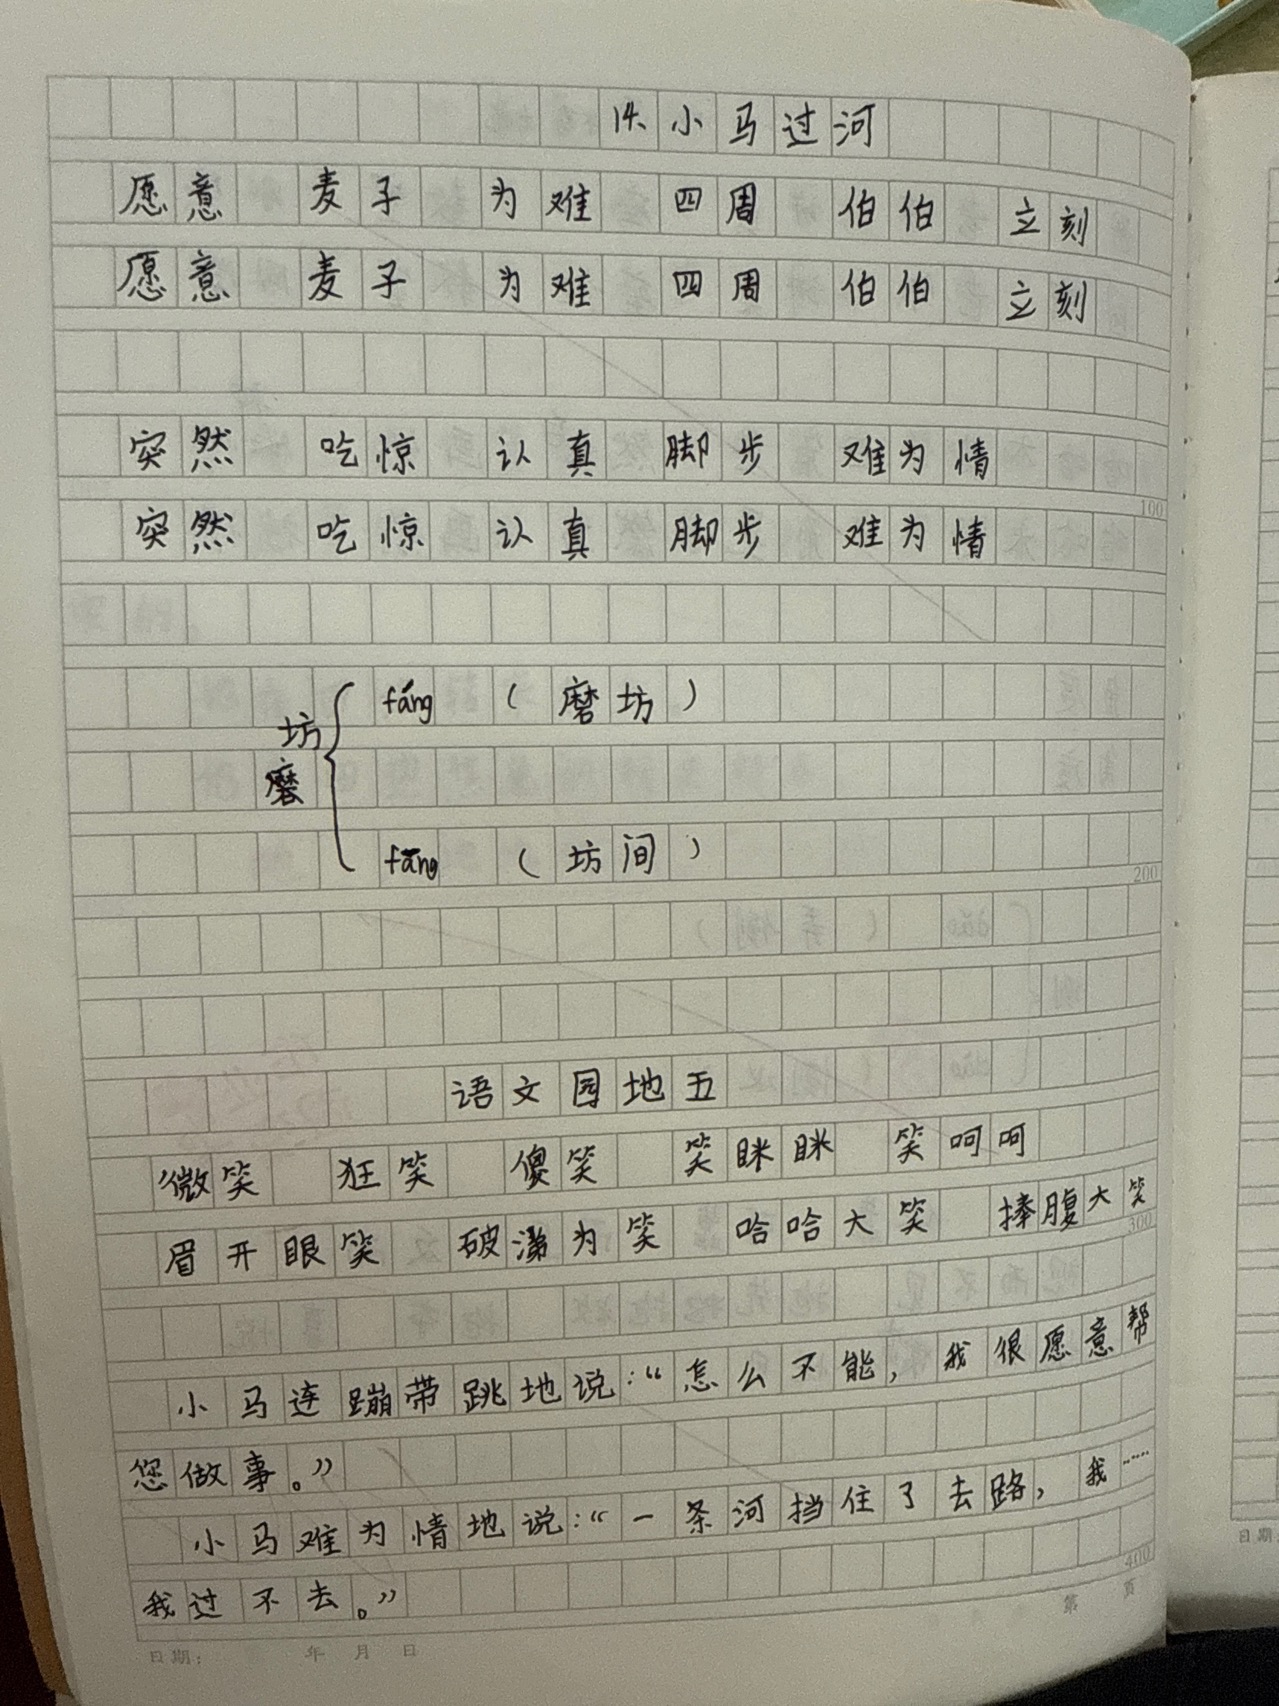 14、小马过河
愿意 麦子 为难 四周 伯伯 立刻
愿意 麦子 为难 四周 伯伯 立刻
突然 吃惊 认真 脚步 难为情
突然 吃惊 认真 脚步 难为情
100
fáng (磨坊)
坊
磨
fāng (坊间)
200
语文园地五
微笑 狂笑 傻笑 笑眯眯 笑呵呵
眉开眼笑 破涕为笑 哈哈大笑 捧腹大笑
300
小马连蹦带跳地说:“怎么不能,我很愿意帮
您做事。”
小马难为情地说:“一条河挡住了去路,我……
我过不去。”
400
第 页
日期: 年 月 日
日期